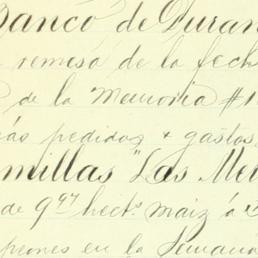 Banco de Duran
remesa de la fech
de la Memoria #1
pedidos & gastos
millas "Las Me
de 9 97 hects maiz á
peones en la Semana